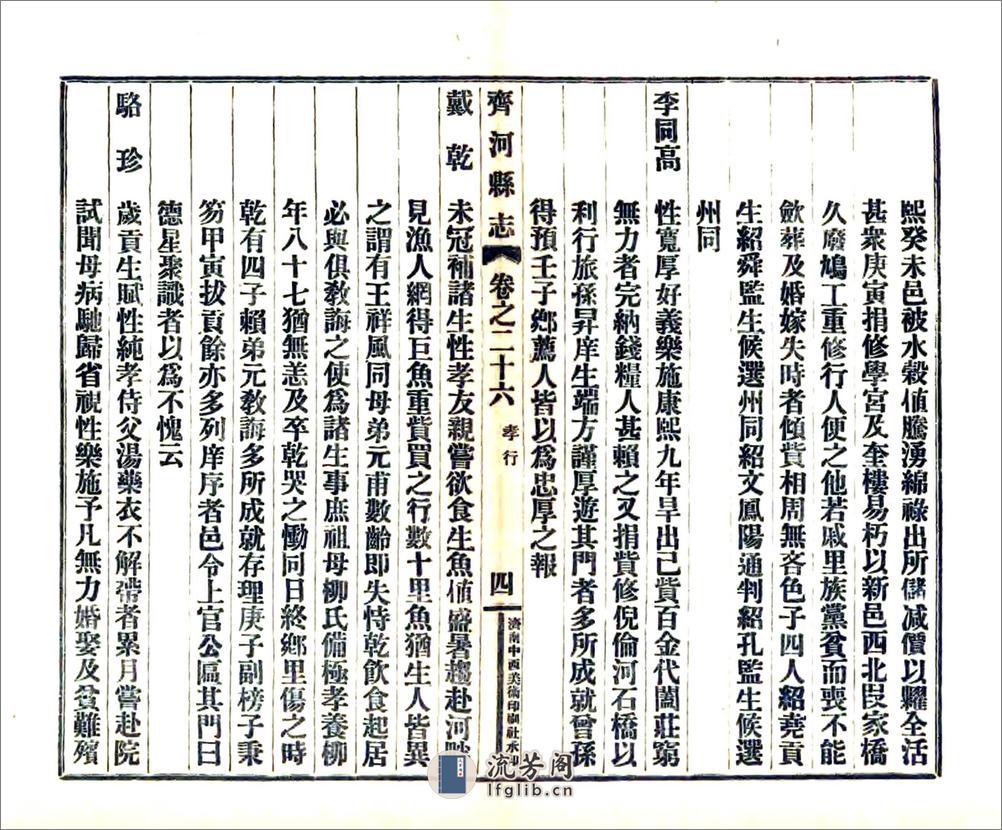 熙癸未邑被水穀値騰湧綿祿出所儲减價以糶全活
甚衆庚寅捐修學宮及奎樓易朽以新邑西北段家橋
久廢鳩工重修行人便之他若戚里族黨貧而喪不能
歛葬及婚嫁失時者傾貲相周無吝色子四人紹堯貢
生紹舜監生候選州同紹文鳳陽通判紹孔監生候選
州同
李同高 性寬厚好義樂施康熙九年旱出己貲百金代闔莊窮
無力者完納錢糧人甚賴之又捐貲修倪倫河石橋以
利行旅孫昇庠生端方謹厚遊其門者多所成就曾孫
得預壬子鄉薦人皆以爲忠厚之報
齊河縣志 卷之二十六 孝行 四 濟南中西美術印刷社承印
戴乾 未冠補諸生性孝友親嘗欲食生魚値盛暑趨赴河
見漁人網得巨魚重貲買之行數十里魚猶生人皆異
之謂有王祥風同母弟元甫數齡即失恃乾飲食起居
必與俱敎誨之使爲諸生事庶祖母柳氏備極孝養柳
年八十七猶無恙及卒乾哭之慟同日終鄉里傷之時
乾有四子賴弟元敎誨多所成就存理庚子副榜子秉
笏甲寅拔貢餘亦多列庠序者邑令上官公匾其門曰
德星聚識者以爲不愧云
駱珍 歲貢生賦性純孝侍父湯藥衣不解帶者累月嘗赴院
試聞母病馳歸省視性樂施予凡無力婚娶及貧難殯
流芳阁
lfglib.cn